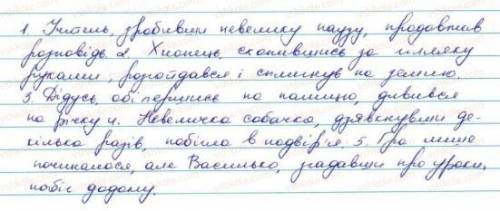 1. Учитель, зробивши невелику паузу, продовжив
розповідь. 2. Хлопець, схопившись за гілляку
руками, розгойдався і сплигнув на землю.
3. Дідусь, обіпершись на палицю, дивився
на річку. 4. Невеличка собачка, дзявкнувши де-
кілька разів, побігла в подвір'я. 5. Гра лише
починалася, але Василько, згадавши про уроки,
побіг додому.